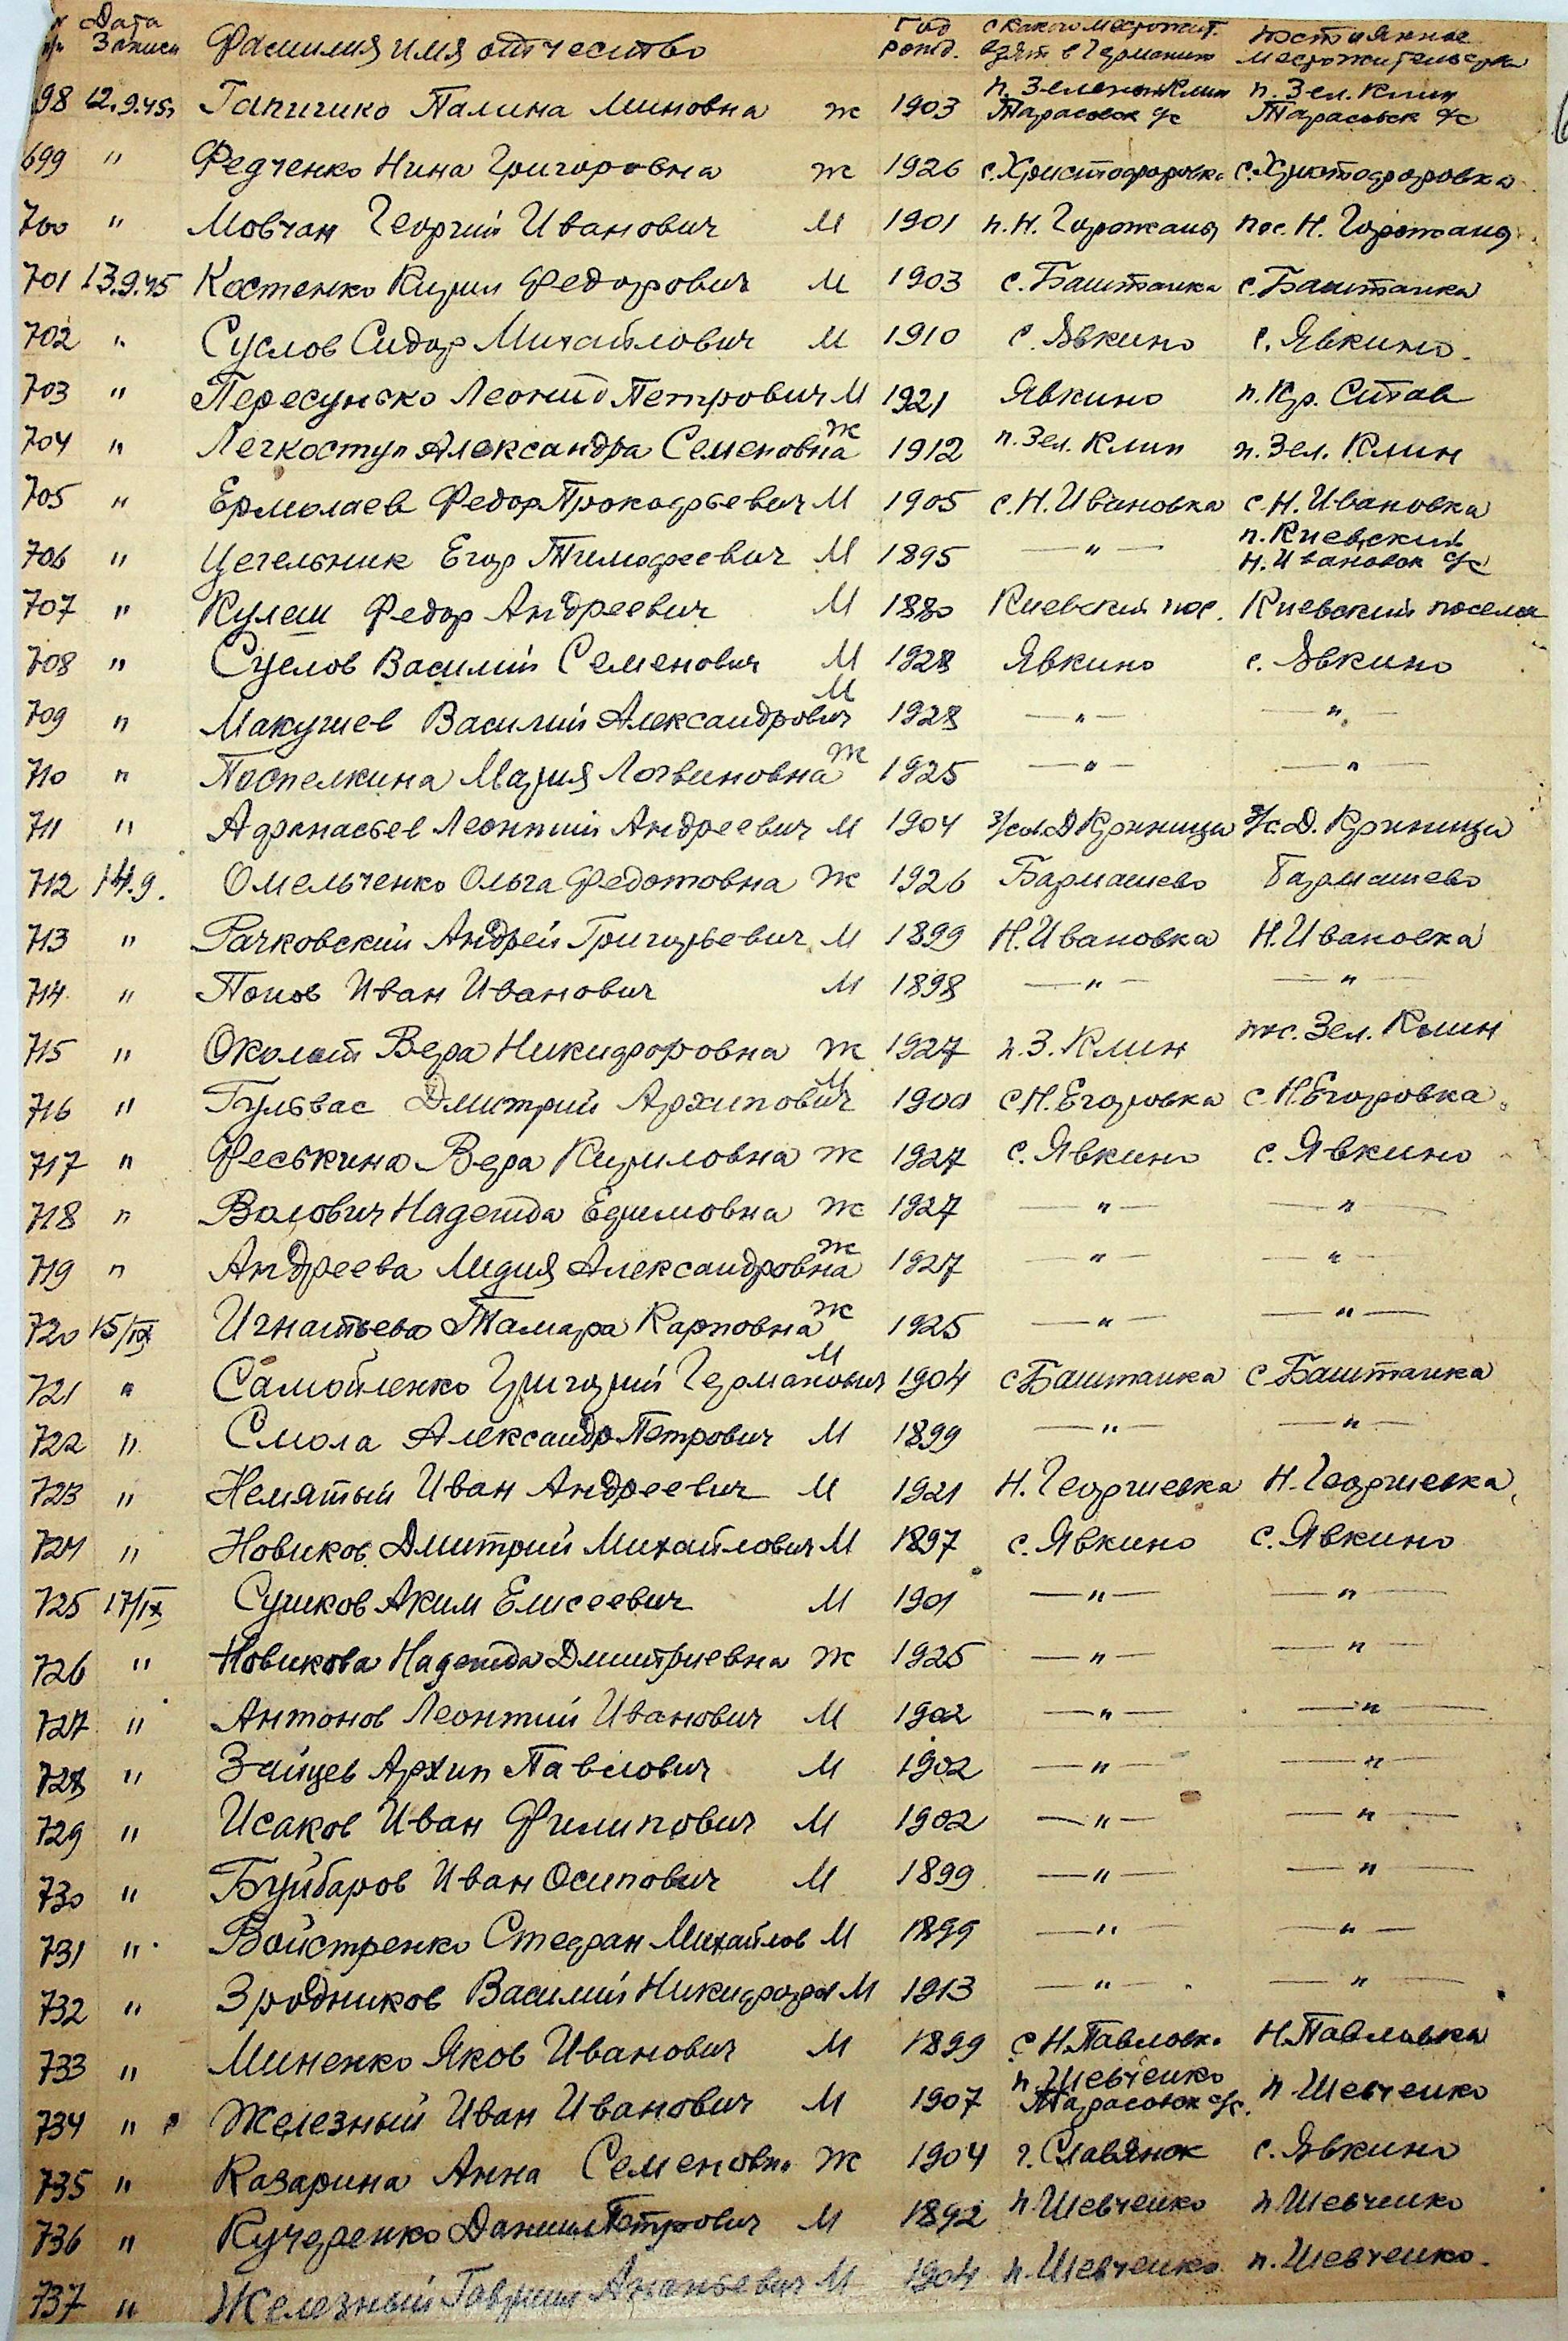 № п/п Дата Записи Фамилия имя отчество Год рожд. с какого местожит. взят в Германию постоянное местожительство
698 12.9.45 Гапичико Палина Миновна ж 1903 п. Зелений Клин Тарасовск с/с п. Зел. Клин Тарасовск с/с
699 " Федченко Нина Григоровна ж 1926 с. Христофоровка с. Христофоровка
700 " Мовчан Георгий Иванович М 1901 п. Н. Горожаня пос. Н. Горожаня
701 13.9.45 Костенко Кирил Федорович М 1903 с. Баштанка с. Баштанка
702 " Суслов Сидор Михайлович М 1910 с. Явкино с. Явкино.
703 " Пересунько Леонид Петрович М 1921 Явкино п. Кр. Став
704 " Легкоступ Александра Семеновна ж 1912 п. Зел. Клин п. Зел. Клин
705 " Ермолаев Федор Прокофьевич М 1905 с. Н. Ивановка с. Н. Ивановка
706 " Цегельник Егор Тимофеевич М 1895 — " — п. Киевский Н. Ивановск с/с
707 " Кулеш Федор Андреевич М 1880 Киевский пос. Киевский поселок
708 " Суслов Василий Семенович М 1928 Явкино с. Явкино
709 " Макушев Василий Александрович М 1928 — " — — " —
710 " Поспелкина Мария Логвиновна ж 1925 — " — — " —
711 " Афанасьев Леонтий Андреевич М 1904 з/с Д. Криница з/с Д. Криница
712 14.9. Омельченко Ольга Федотовна ж 1926 Бармашево Бармашево
713 " Рачковский Андрей Григорьевич М 1899 Н. Ивановка Н. Ивановка
714 " Попов Иван Иванович М 1898 — " — — " —
715 " Околот Вера Никифоровна ж 1927 п. З. Клин пос. Зел. Клин
716 " Гульвас Дмитрий Архипович М 1900 с Н. Егоровка с. Н. Егоровка.
717 " Феськина Вера Кириловна ж 1927 с. Явкино с. Явкино
718 " Волович Надежда Ефимовна ж 1927 — " — — " —
719 " Андреева Лидия Александровна ж 1927 — " — — " —
720 15/IX Игнатьева Тамара Карповна ж 1925 — " — — " —
721 " Самойленко Григорий Германович М 1904 с Баштанка с Баштанка
722 " Смола Александр Петрович М 1899 — " — — " —
723 " Немятый Иван Андреевич М 1921 Н. Георгиевка Н. Георгиевка
724 " Новиков Дмитрий Михайлович М 1897 с. Явкино с. Явкино
725 17/IX Сушков Аким Елисеевич М 1901 — " — — " —
726 " Новикова Надежда Дмитриевна ж 1925 — " — — " —
727 " Антонов Леонтий Иванович М 1902 — " — — " —
728 " Зайцев Архип Павлович М 1902 — " — — " —
729 " Исаков Иван Филипович М 1902 — " — — " —
730 " Буйбаров Иван Осипович М 1899 — " — — " —
731 " Войстренко Стефан Михайлов М 1899 — " — — " —
732 " Зродников Василий Никифоров М 1913 — " — — " —
733 " Миненко Яков Иванович М 1899 с Н. Павловка Н. Павловка
734 " Железный Иван Иванович М 1907 п. Шевченко Тарасовск с/с. п. Шевченко
735 " Казарина Анна Семеновна ж 1904 г. Славянск с. Явкино
736 " Кучеренко Данил Петрович М 1892 п. Шевченко п. Шевченко
737 " Железный Гаврил Ананьевич М 1904 п. Шевченко п. Шевченко.